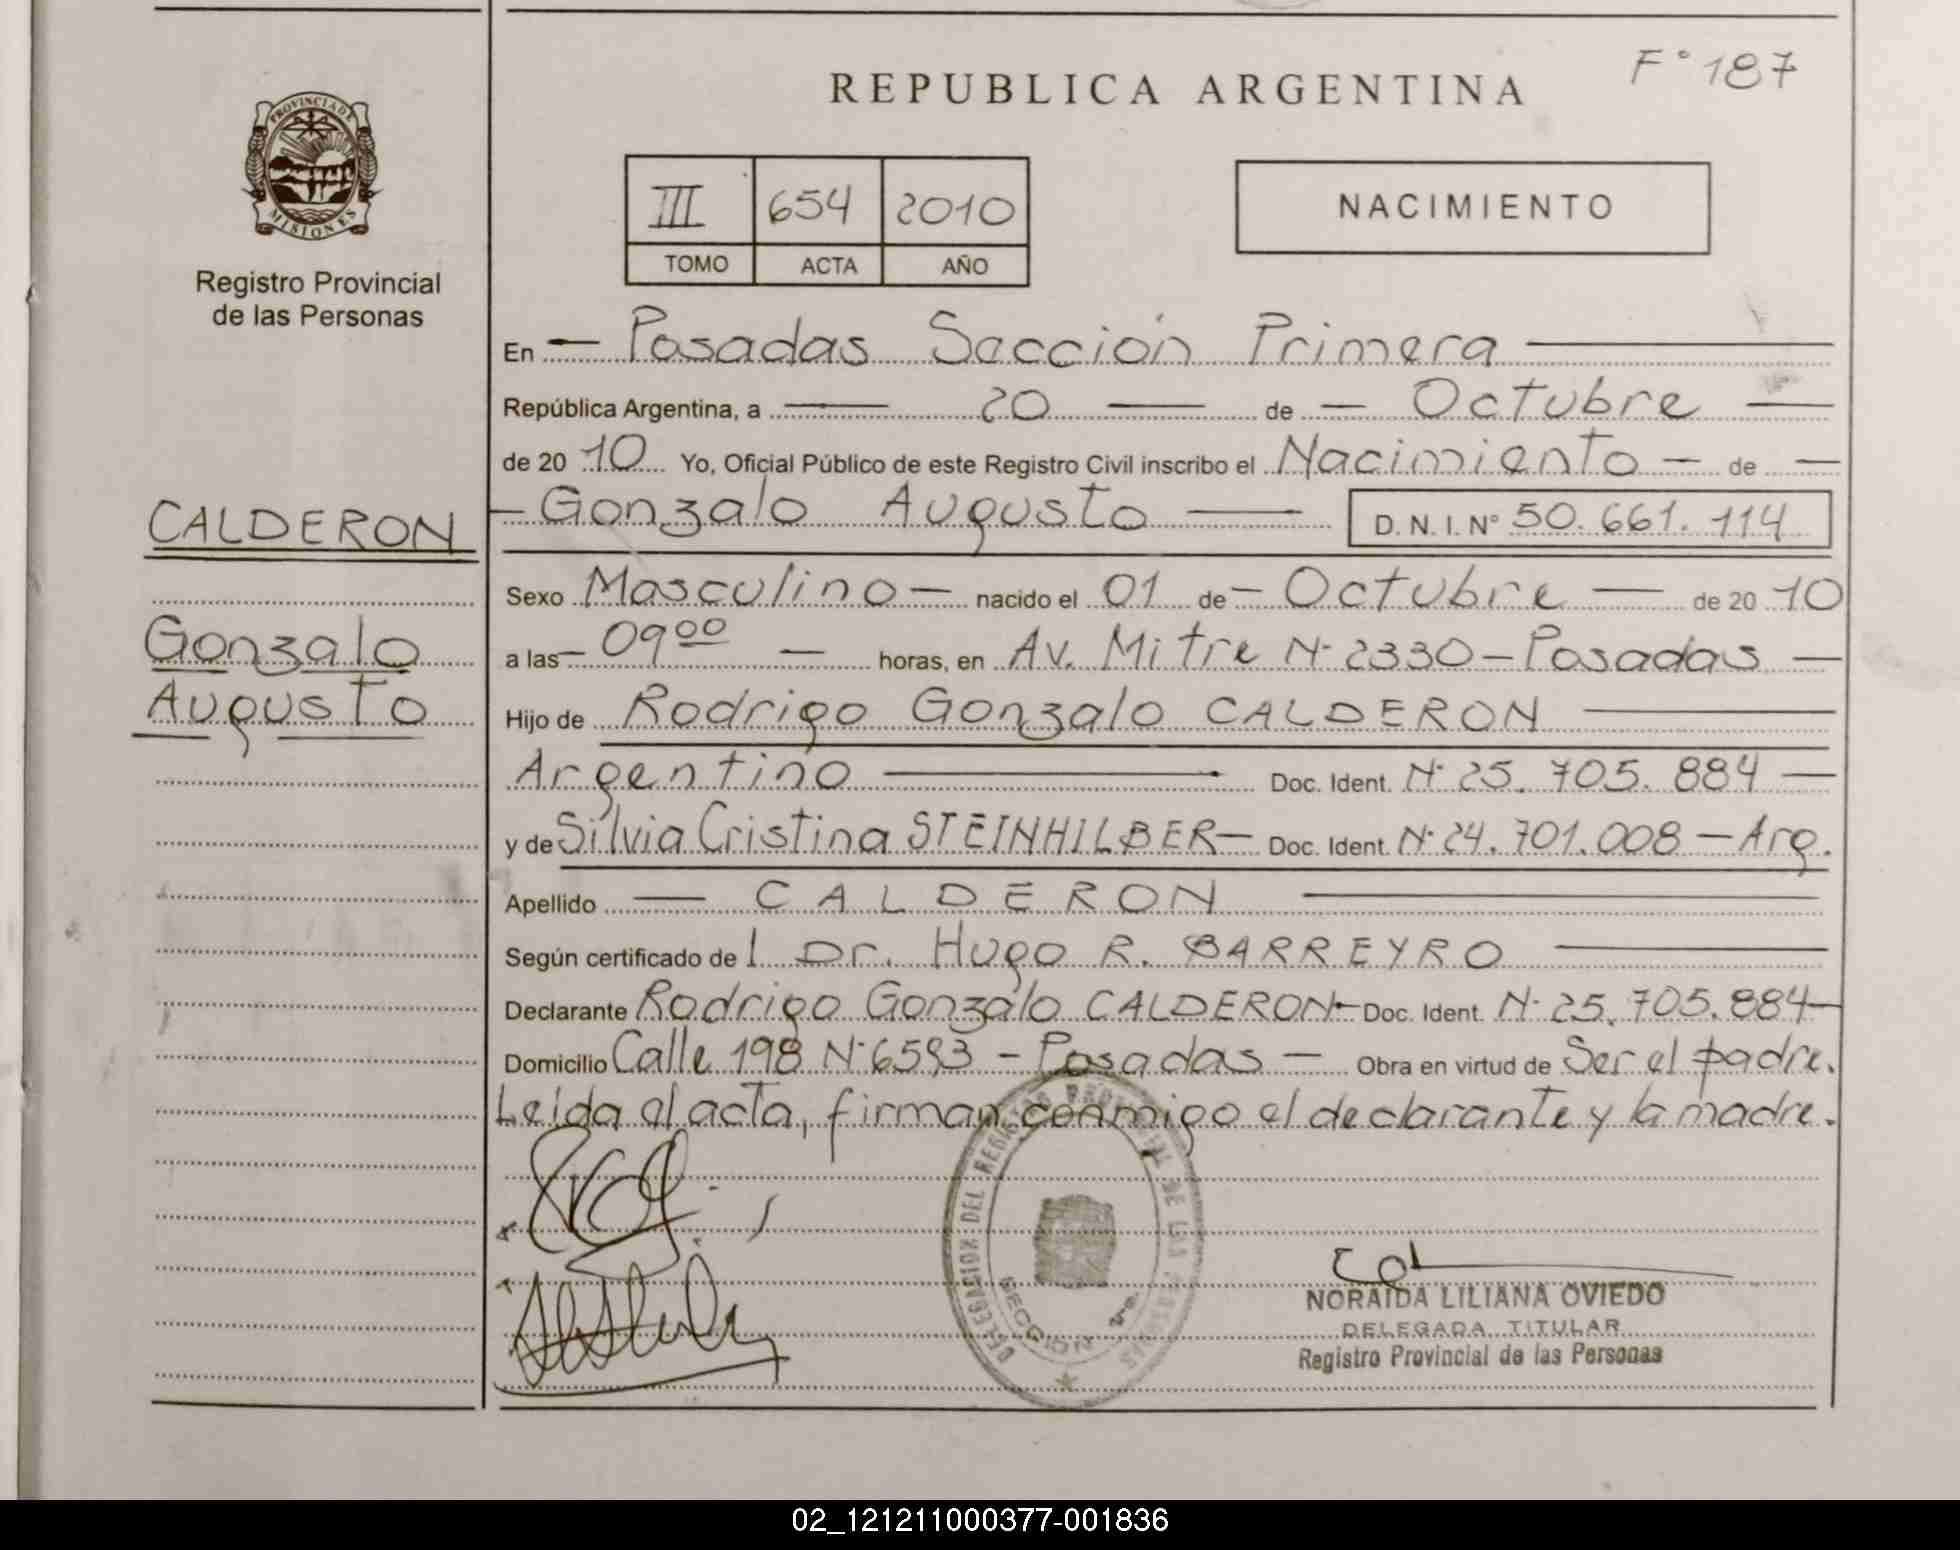 F° 187
REPUBLICA ARGENTINA
PROVINCIA DE
MISIONES
Registro Provincial
de las Personas
III 654 2010
TOMO ACTA AÑO
NACIMIENTO
En Posadas Sección Primera
República Argentina, a 20 de Octubre
de 20 10 Yo, Oficial Público de este Registro Civil inscribo el Nacimiento de
CALDERON
Gonzalo Augusto D. N. I. N° 50.661.114
Sexo Masculino nacido el 01 de Octubre de 20 10
Gonzalo
a las 09 00 horas, en Av. Mitre N· 2330 - Posadas
Augusto
Hijo de Rodrigo Gonzalo CALDERON
Argentino Doc. Ident. N· 25.705.884
y de Silvia Cristina STEINHILBER Doc. Ident. N· 24.701.008 - Arg.
Apellido CALDERON
Según certificado de l Dr. Hugo R. BARREYRO
Declarante Rodrigo Gonzalo CALDERON Doc. Ident. N· 25.705.884
Domicilio Calle 198 N· 6593 - Posadas Obra en virtud de Ser el padre.
Leida el acta, firman conmigo el declarante y la madre.
DELEGACION DEL REGISTRO PROVINCIAL DE LAS PERSONAS
SECCION 1ra.
NORAIDA LILIANA OVIEDO
DELEGADA TITULAR
Registro Provincial de las Personas
02_121211000377-001836